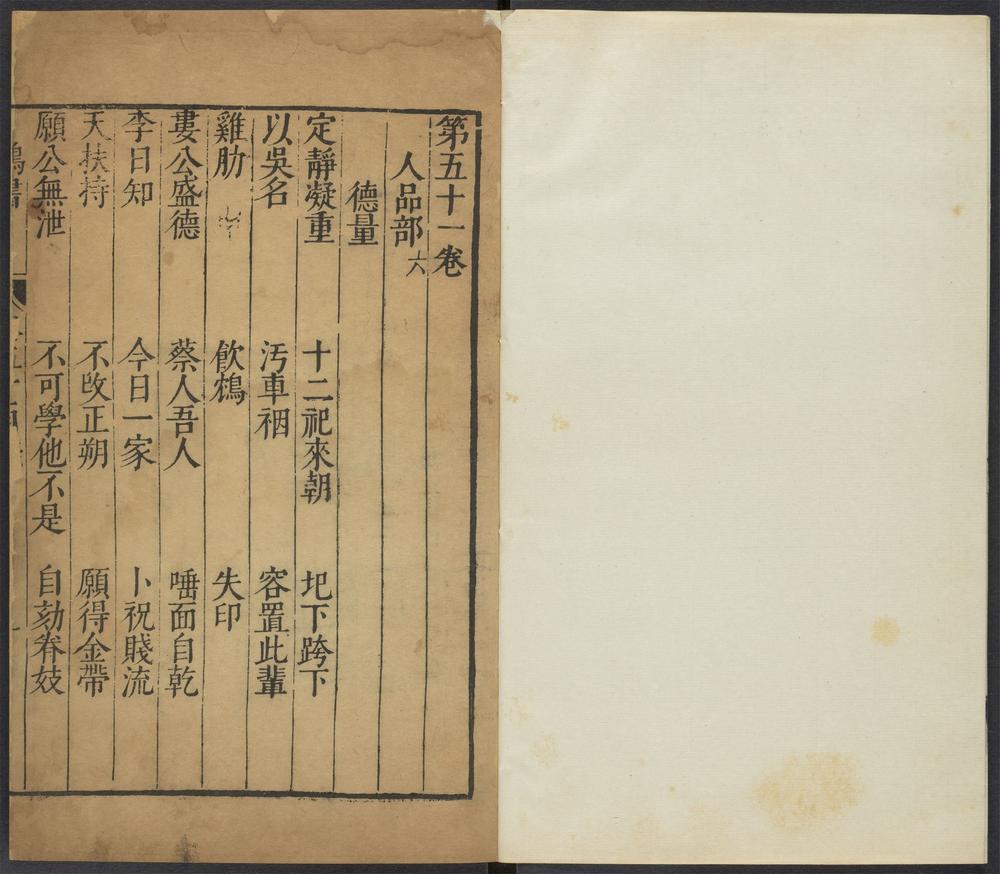 第五十一卷
人品部 六
德量
定靜凝重 十二祀來朝 圯下跨下
以吳名 污車裀 容置此輩
雞肋 飲鴆 失印
婁公盛德 蔡人吾人 唾面自乾
李日知 今日一家 卜祝賤流
天扶持 不改正朔 願得金帶
願公無泄 不可學他不是 自劾眷妓